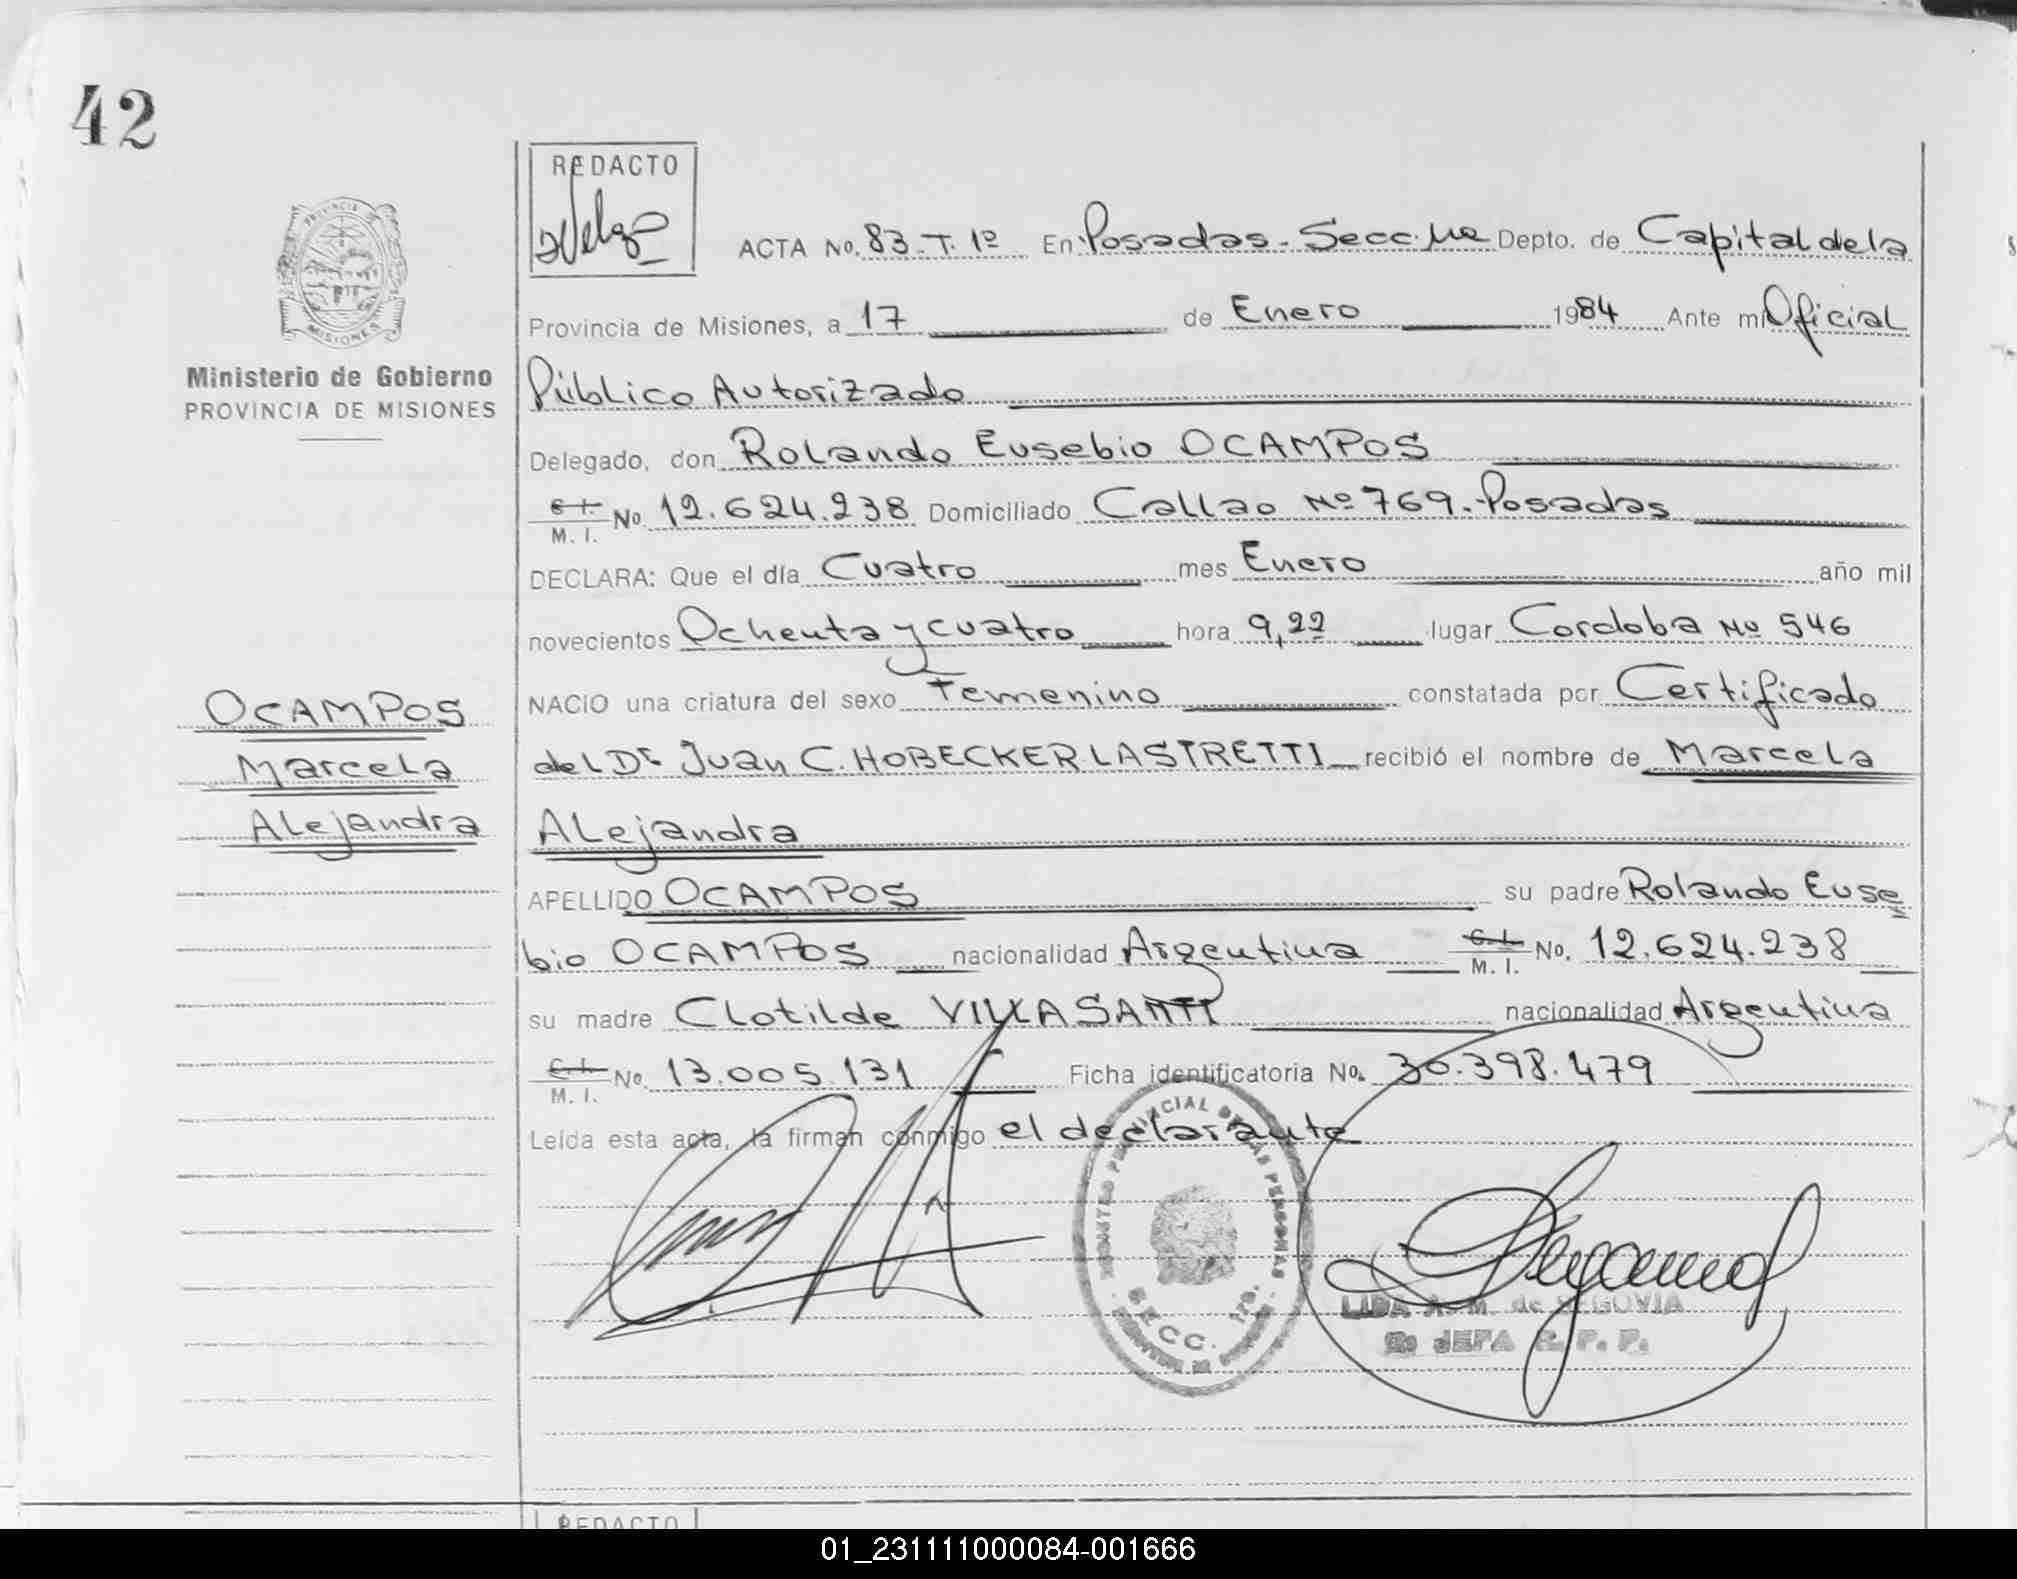 42
REDACTO
PROVINCIA DE
MISIONES
ACTA No. 83-T. 1º En Posadas-Secc. Depto. de Capital de la
Provincia de Misiones, a 17 de Enero 1984 Ante mi Oficial
Ministerio de Gobierno
PROVINCIA DE MISIONES
Público Autorizado
Delegado, don Rolando Eusebio OCAMPOS
C. I. No. 12.624.238 Domiciliado Callao Nº 769.-Posadas
M. I.
DECLARA: Que el día Cuatro mes Enero año mil
novecientos Ochenta y cuatro hora 9,22 lugar Cordoba Nº 546
NACIO una criatura del sexo Femenino constatada por Certificado
OCAMPOS
Marcela
Alejandra
del Dr. Juan C. HOBECKER LASTRETTI recibió el nombre de Marcela
Alejandra
APELLIDO OCAMPOS su padre Rolando Euse
bio OCAMPOS nacionalidad Argentina C. I. No. 12.624.238
M. I.
su madre Clotilde VILLASANTI nacionalidad Argentina
C. I. No. 13.005.131 Ficha identificatoria No. 30.398.479
M. I.
Leída esta acta, la firman conmigo el declarante
REGISTRO PROVINCIAL DE LAS PERSONAS
SECC. 1ra.
LIDA A. M. de SEGOVIA
JEFA R. P. P.
REDACTO
01_231111000084-001666